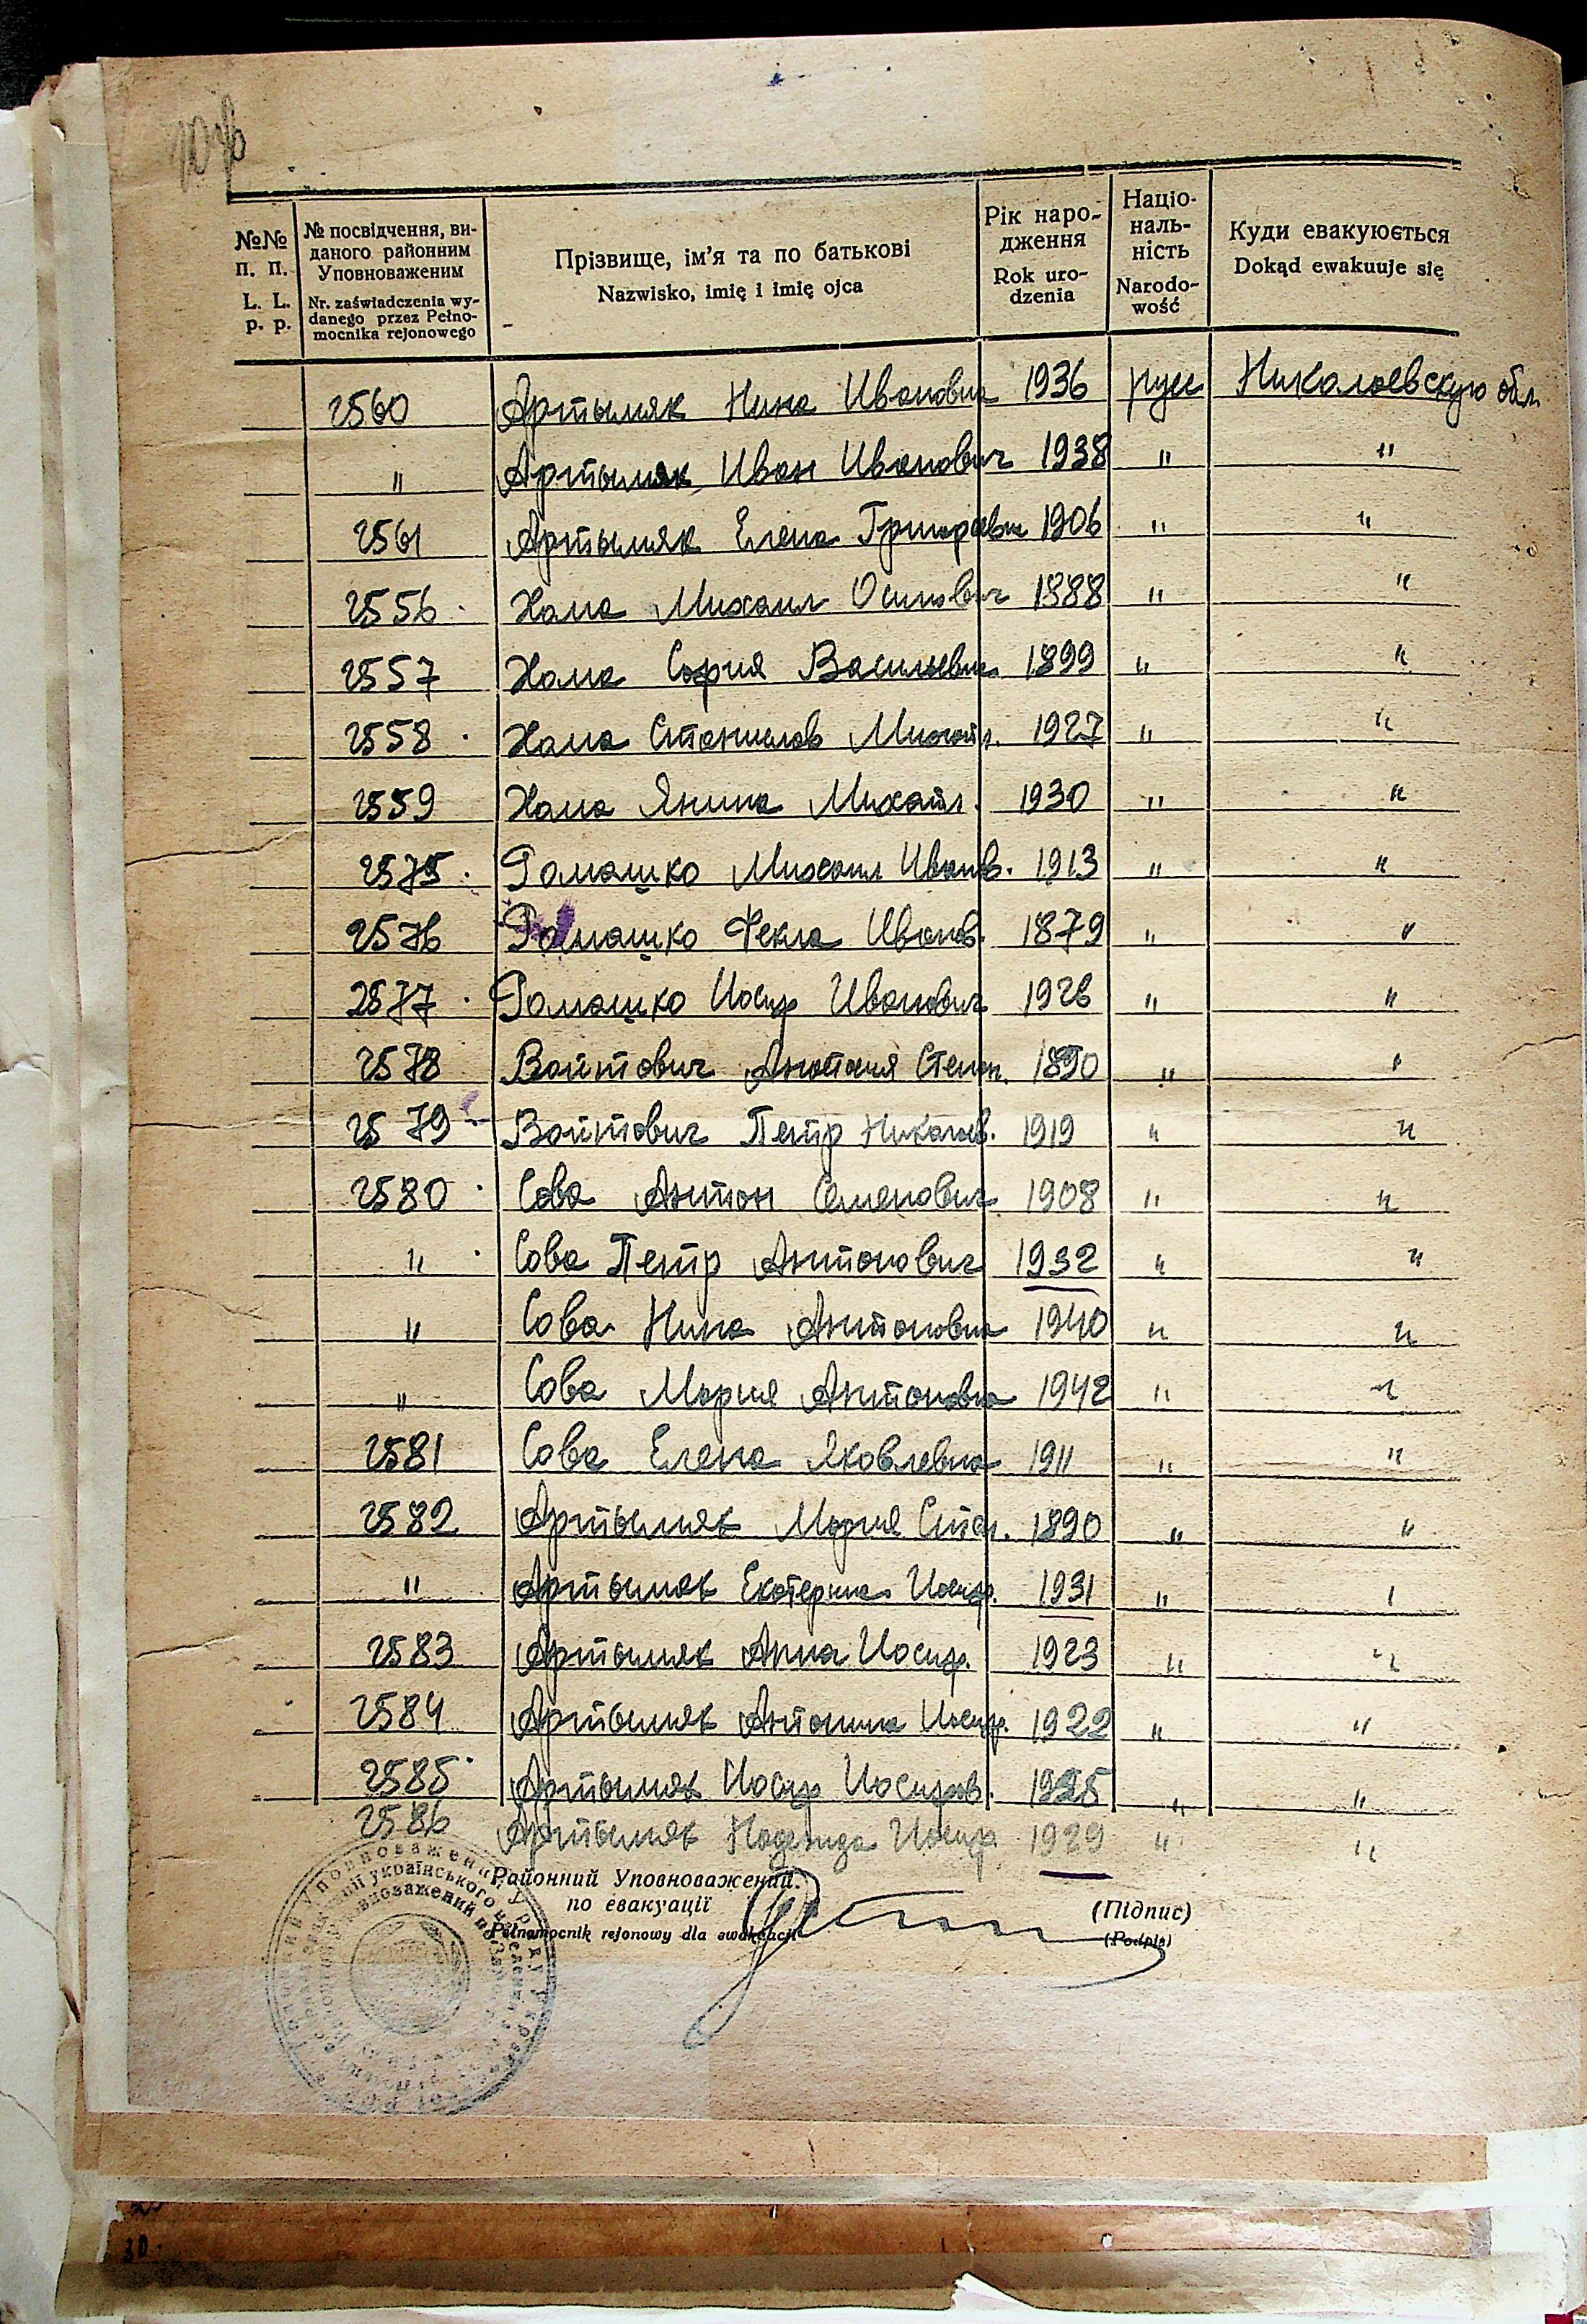 №№ п. п. L. L. p. p.
№ посвідчення, виданого районним Уповноваженим
Nr. zaświadczenia wydanego przez Pełnomocnika rejonowego
Прізвище, ім'я та по батькові
Nazwisko, imię i imię ojca
Рік народження
Rok urodzenia
Національність
Narodowość
Куди евакуюється
Dokąd ewakuuje się
2560 Артымяк Нина Ивановна 1936 рус Николаевскую обл.
" Артымяк Иван Иванович 1938 " "
2561 Артымяк Елена Григоревна 1906 " "
2556 Хома Михаил Осипович 1888 " "
2557 Хома София Васильевна 1899 " "
2558 Хома Станислав Михайл. 1927 " "
2559 Хома Янина Михайл. 1930 " "
2575 Ромашко Михаил Иванов. 1913 " "
2576 Ромашко Фекла Иванов. 1879 " "
2577 Ромашко Иосиф Иванович 1926 " "
2578 Войтович Степан. 1890 " "
2579 Войтович Петр Николаев. 1919 " "
2580 Сова Антон Семенович 1908 " "
" Сова Петр Антонович 1932 " "
" Сова Нина Антоновна 1940 " "
" Сова Мария Антоновна 1942 " "
2581 Сова Елена Яковлевна 1911 " "
2582 Артымяк Мария Степ. 1890 " "
" Артымяк Екатерина Иосиф. 1931 " "
2583 Артымяк Анна Иосиф. 1923 " "
2584 Артымяк Антонина Иосиф. 1922 " "
2585 Артымяк Иосиф Иосифов. 1925 " "
2586 Артымяк Надежда Иосиф 1929 " "
Районний Уповноважений
по евакуації
Pełnomocnik rejonowy dla ewakuacji
(Підпис)
(Podpis)